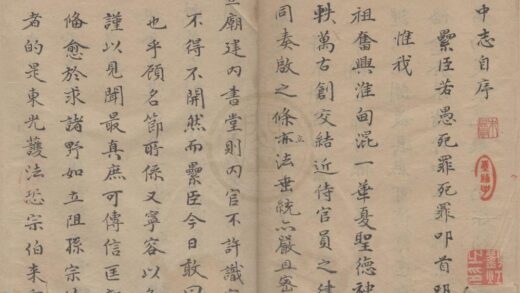 中志自序
纍臣若愚死罪死罪叩首
惟我
祖奮興淮甸混一華夏聖德神
軼萬古創交結近侍官員之律
同奏啟之條立法垂統亦嚴且密
廟建內書堂則內官不許識
不得不開然而纍臣今日敢
也乎顧名節所係又寧容以
謹以見聞最真庶可傳信匡
脩愈於求諸野如立阻孫宗
者的是東光護法恐宗伯來